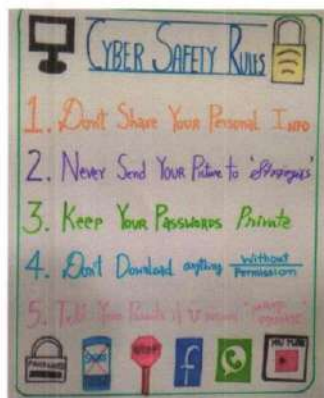 CYBER SAFETY RULES
1. Don't Share Your Personal Info
2. Never Send Your Picture to 'Strangers'
3. Keep Your Passwords Private
4. Don't Download anything without Permission
5. Tell Your
PASSWORD
STOP
f
YOU TUBE